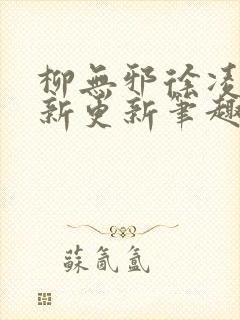 柳無邪徐凌
新更新筆趣
蘇氤氳